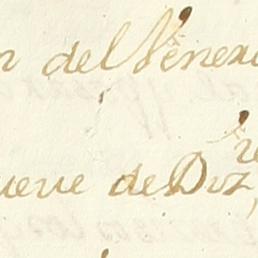 n del Venera
ueve de Diz.re